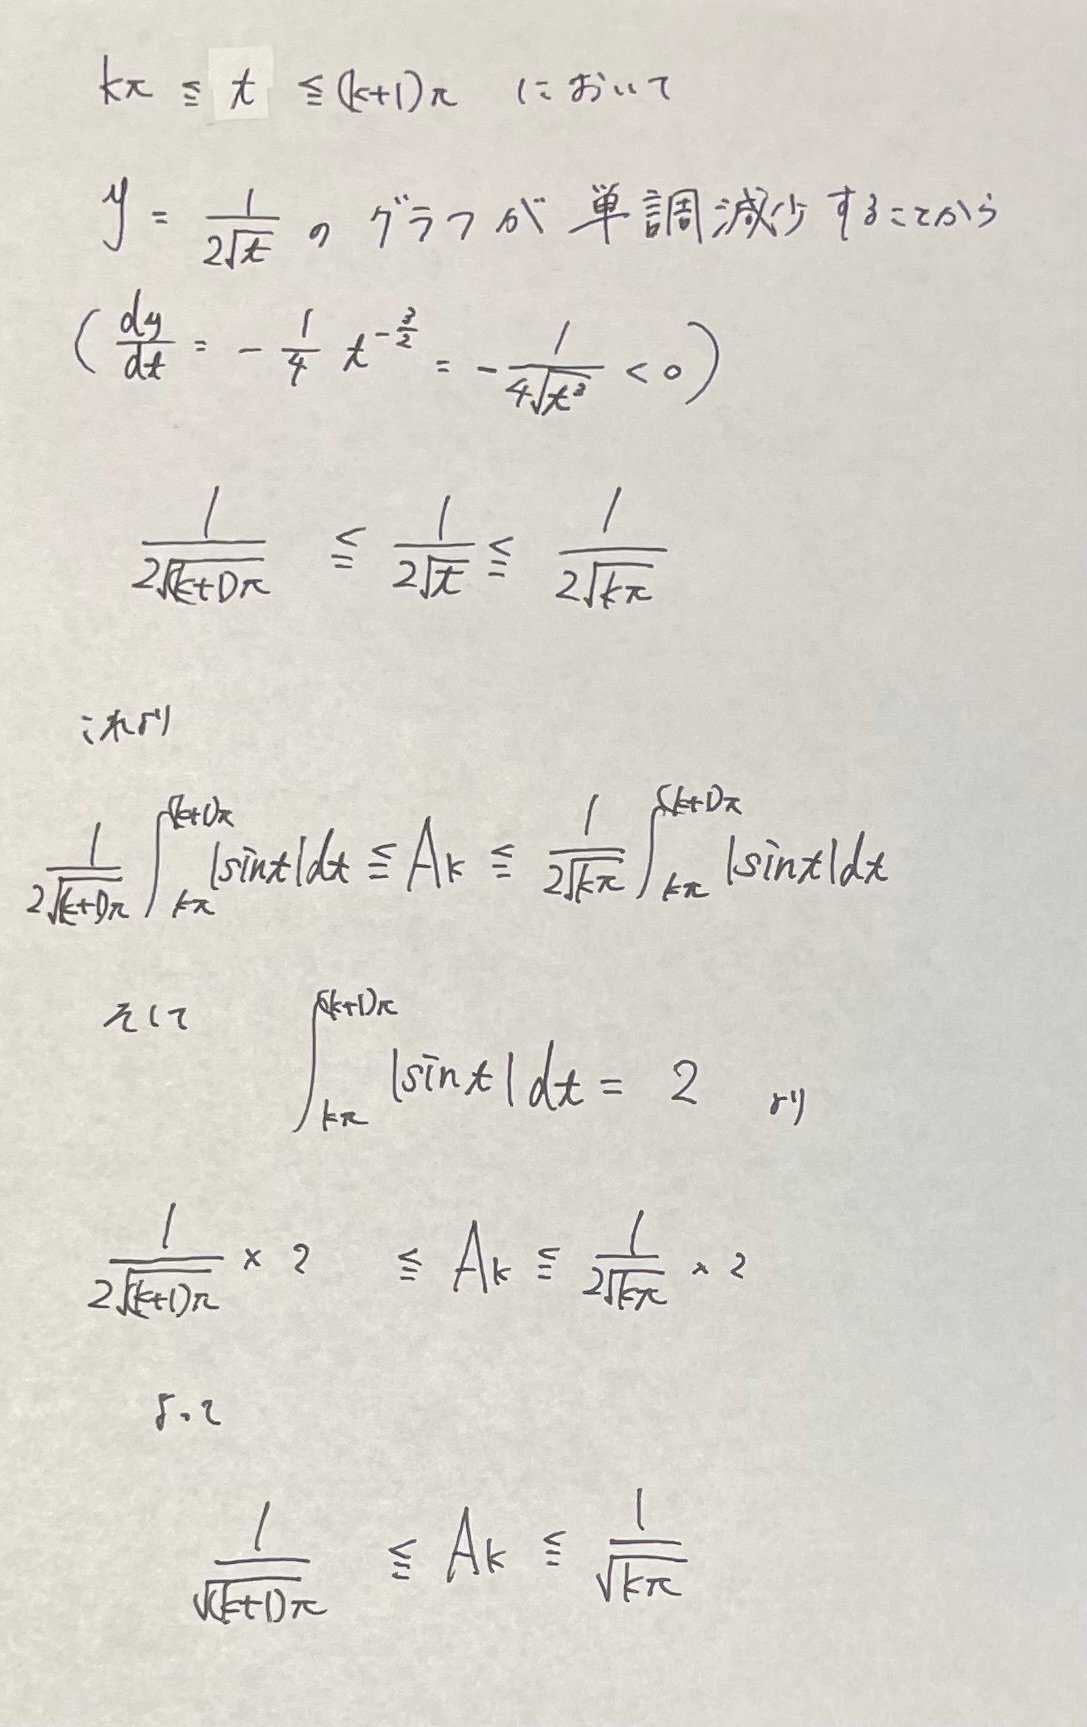 kπ ≦ t ≦ (k+1)π において
y = 1/(2√t) の グラフが 単調減少することから
( dy/dt = - 1/4 t^(-3/2) = - 1/(4√t³) < 0 )
1/(2√(k+1)π) ≦ 1/(2√t) ≦ 1/(2√kπ)
これより
1/(2√(k+1)π) ∫_{kπ}^{(k+1)π} |sint|dt ≦ Ak ≦ 1/(2√kπ) ∫_{kπ}^{(k+1)π} |sint|dt
そして ∫_{kπ}^{(k+1)π} |sint|dt = 2 より
1/(2√(k+1)π) × 2 ≦ Ak ≦ 1/(2√kπ) × 2
よって
1/√(k+1)π ≦ Ak ≦ 1/√kπ